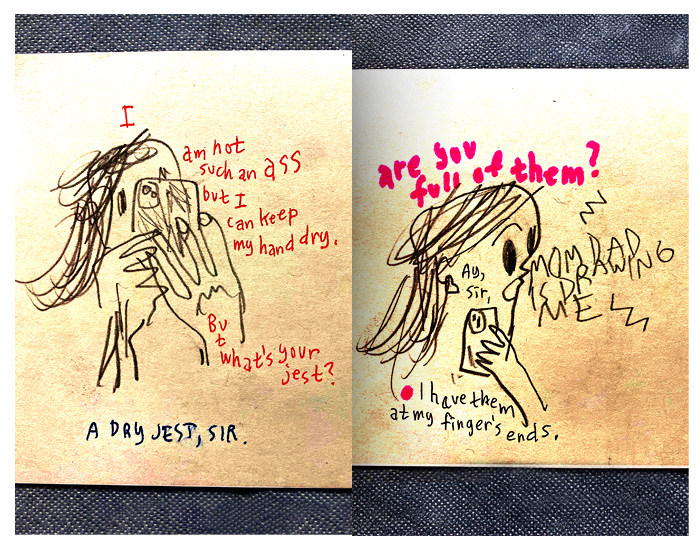 I
am not
such an ass
but I
can keep
my hand dry.
But
what's your
jest?
A DRY JEST, SIR.
are you
full of them?
Ay,
sir,
I have them
at my finger's
ends.
MOM
IS
ME